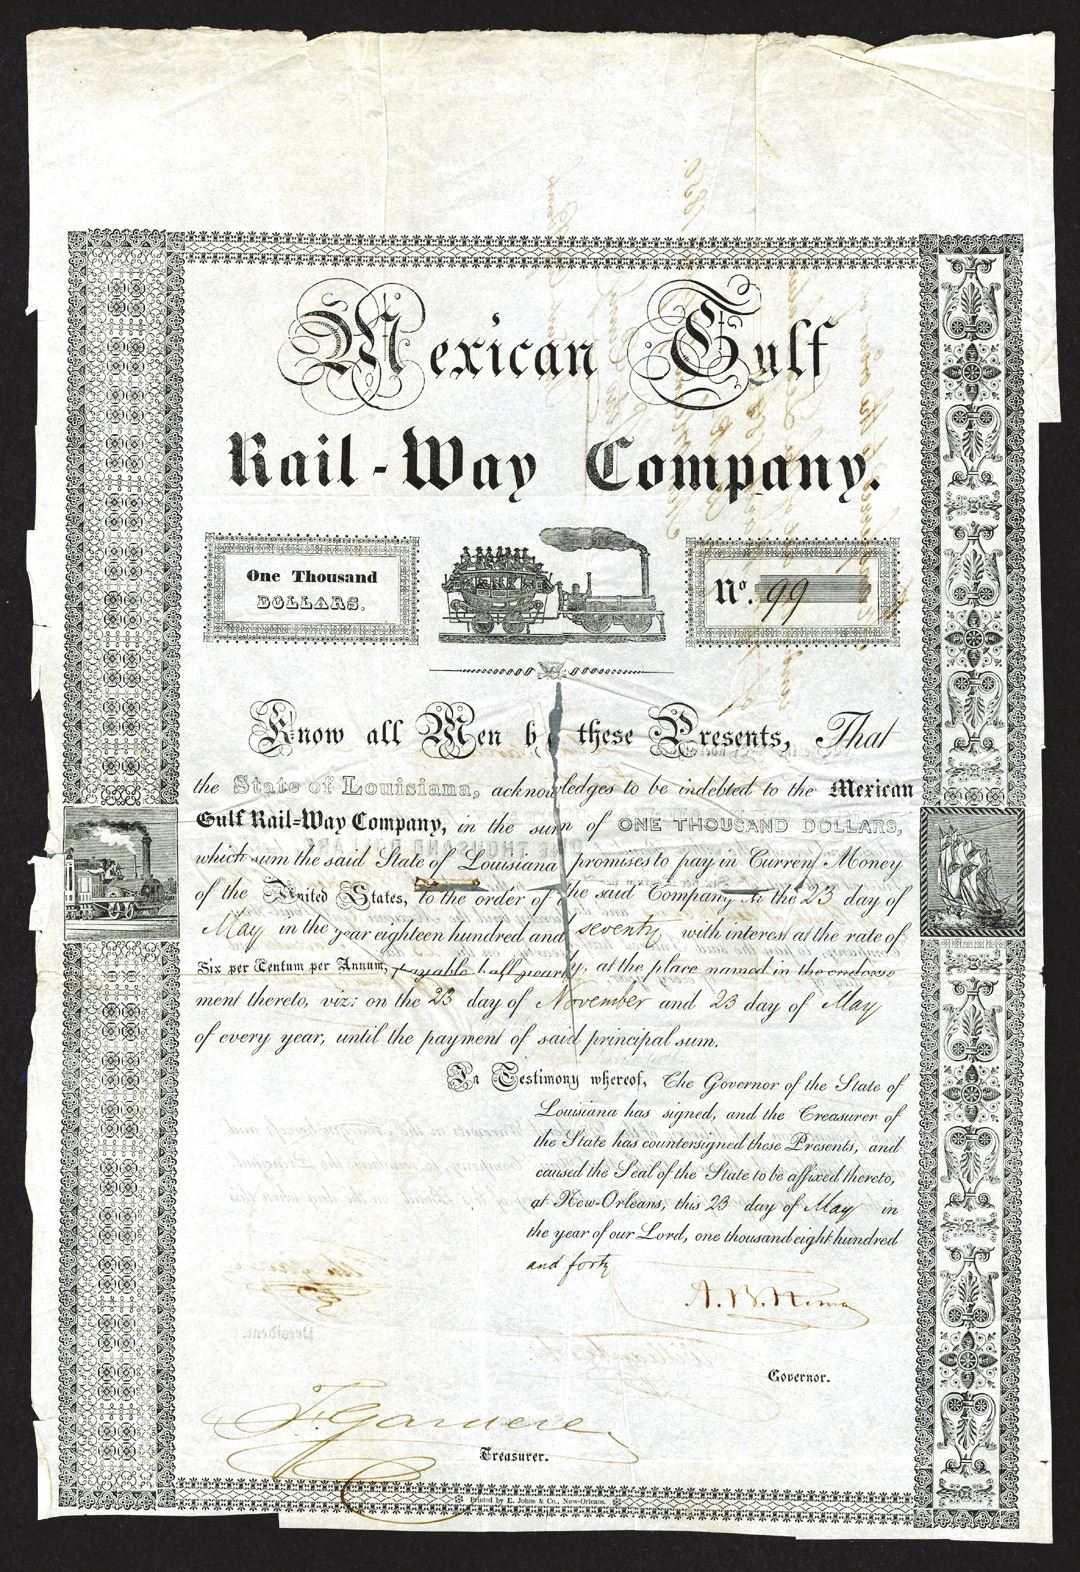 Mexican Gulf
Rail-Way Company.
One Thousand
DOLLARS.
No. 99
Know all Men by these Presents, That
the State of Louisiana, acknowledges to be indebted to the Mexican
Gulf Rail-Way Company, in the sum of ONE THOUSAND DOLLARS,
which sum the said State of Louisiana promises to pay in Current Money
of the United States, to the order of the said Company the 23 day of
May in the year eighteen hundred and seventy with interest at the rate of
Six per Centum per Annum, payable half yearly, at the place named in the endorse
ment thereto, viz: on the 23 day of November and 23 day of May
of every year, until the payment of said principal sum.
In Testimony whereof, The Governor of the State of
Louisiana has signed, and the Treasurer of
the State has countersigned these Presents, and
caused the Seal of the State to be affixed thereto,
at New-Orleans, this 23 day of May in
the year of our Lord, one thousand eight hundred
and forty
A. B.
Governor.
Treasurer.
Printed by E. Johns & Co., New-Orleans.